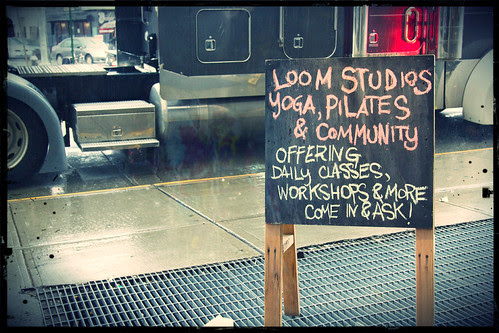 LOOM STUDIOS
YOGA, PILATES
& COMMUNITY
OFFERING
DAILY CLASSES,
WORKSHOPS & MORE
COME IN & ASK!